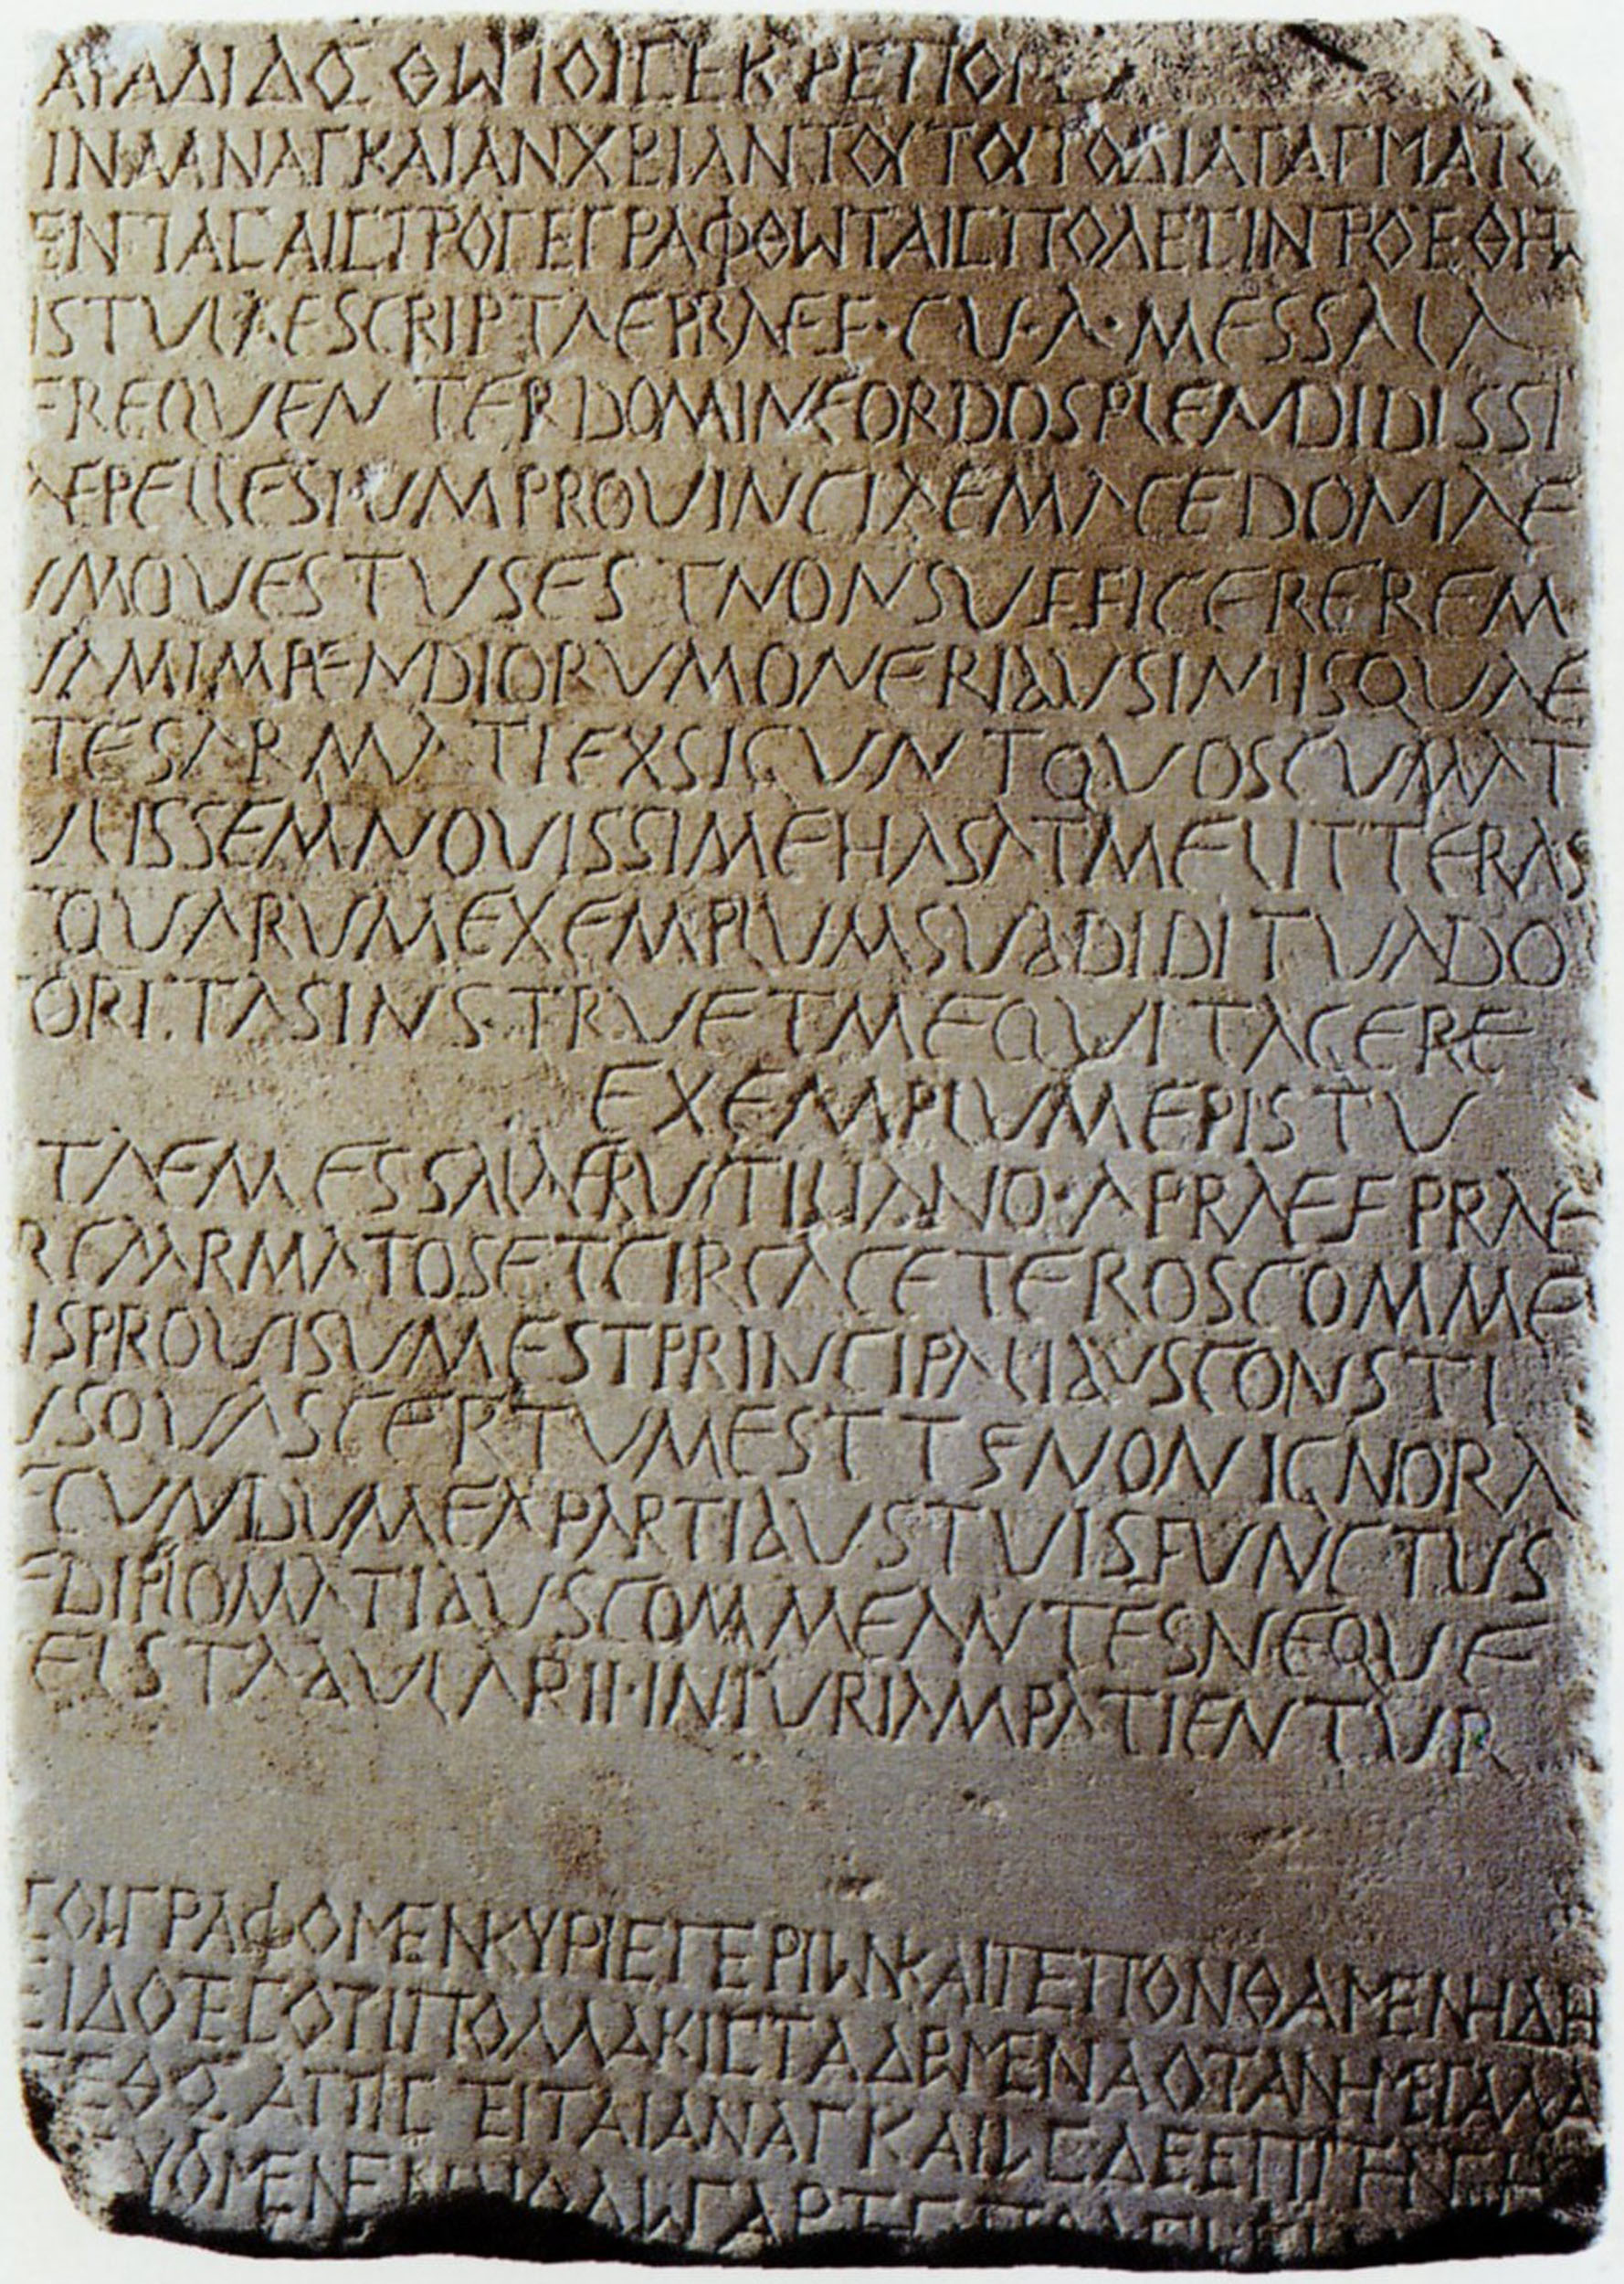 ΑΡΑΔΙΔΟΣ ΘΩ ΤΟΙΣ ΕΚΡΕΤΙΟΙ
ΙΝΑΑΝΑΓΚΑΙΑΝΧΡΕΙΑΝΤΟΥΤΟΥΤΟΥΔΙΑΤΑΓΜΑΤΟ
ΕΝΠΑΣΑΙΣΠΡΟΓΕΓΡΑΦΘΩΤΑΙΣΠΟΛΕΣΙΝΠΡΟΕΘΗΤΩ
ISTULAESCRIPTAEPRAEF·CU·A·MESSALA
FREQUENTERDOMINEORDOSPLENDIDISSI
AEPELLESIUMPROVINCIAEMACEDONIAE
UMQUESTUSESTNONSUFFICEREREM
UAMIMPENDIORUMONERIBUSIMISQUAE
TESARMATIEXSIGUNTQUOSCUMAT
ULISSEMNOVISSIMEHASATMELITTERAS
TQUARUMEXEMPLUMSUBDIDITUADO
TORITASINSTRUETMEQUITAGERE
EXEMPLUMEPISTU
TAEMESSALAERUTILIANO·APRAEFPRAE
RCAARMATOSETCIRCACETEROSCOMME
ISPROVISUMESTPRINCIPALIBUSCONSTI
USQUASCERTUMESTTENONIGNORA
ECUNDUMEAPARTIBUSTUISFUNCTUS
EDIPLOMATIBUSCOMMEANTESNEQUE
ELSTABULARII·INIURIAMPATIENTUR
ΣΟΙΓΡΑΦΟΜΕΝΚΥΡΙΕΓΕΡΙΩΝΚΑΙΓΕΠΟΝΘΑΜΕΝΗΔΗ
ΕΙΔΟΤΕΣΟΤΙΠΟΛΛΑΚΙΣΤΑΔΡΩΜΕΝΑΟΤΑΝΗΜΕΓΑΛΑ
ΓΕΘΟΣ ΑΠΙΣΤΕΙΤΑΙΑΝΑΓΚΑΙΩΣΔΕΕΠΙΓΗΝ